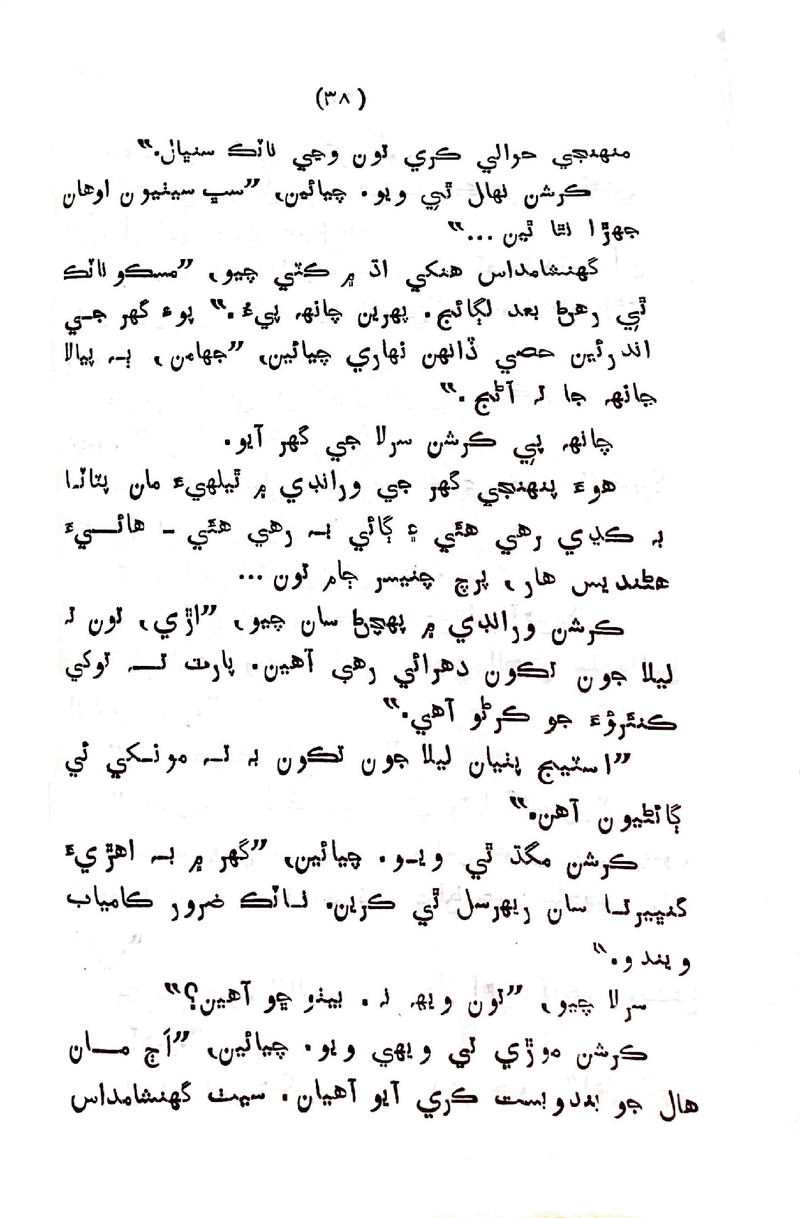 (٣٨)
منهنجي حوالي ڪري تون وڃي ناٽڪ سنڀال.“
ڪرشن نهال ٿي ويو. چيائين، ”سڀ سيٺيون اوهان
جهڙا نٿا ٿين ...“
گهنشامداس هنکي اڌ ۾ ڪٽي چيو، ”مسڪو ناٽڪ
ٿي رهڻ بعد لڳائج. پهرين چانهه پيءُ.“ پوءِ گهر جي
اندرئين حصي ڏانهن نهاري چيائين، ”جهامن، ٻه پيالا
چانهه جا ته آڻج.“
چانهه پي ڪرشن سرلا جي گهر آيو.
هوءَ پنهنجي گهر جي ورانڊي ۾ ٿيلهيءَ مان پٽاٽا
به ڪڍي رهي هئي ۽ ڳائي به رهي هئي - هائيءَ
هڻنديس هار، پرچ چنيسر ڄام تون ...
ڪرشن ورانڊي ۾ پهچڻ سان چيو، ”اڙي، تون ته
ليلا جون تڪون دهرائي رهي آهين. پارٽ ته توکي
ڪنئروءَ جو ڪرڻو آهي.“
”اسٽيج پٺيان ليلا جون تڪون به ته مونکي ئي
ڳائڻيون آهن.“
ڪرشن مگڌ ٿي ويو. چيائين، ”گهر ۾ به اهڙيءَ
گنڀيرتا سان ريهرسل ٿي ڪرين. ناٽڪ ضرور ڪامياب
ويندو.“
سرلا چيو، ”تون ويهه نه. بيٺو ڇو آهين؟“
ڪرشن موڙي تي ويهي ويو. چيائين، ”اڄ مان
هال جو بندوبست ڪري آيو آهيان. سيٺ گهنشامداس